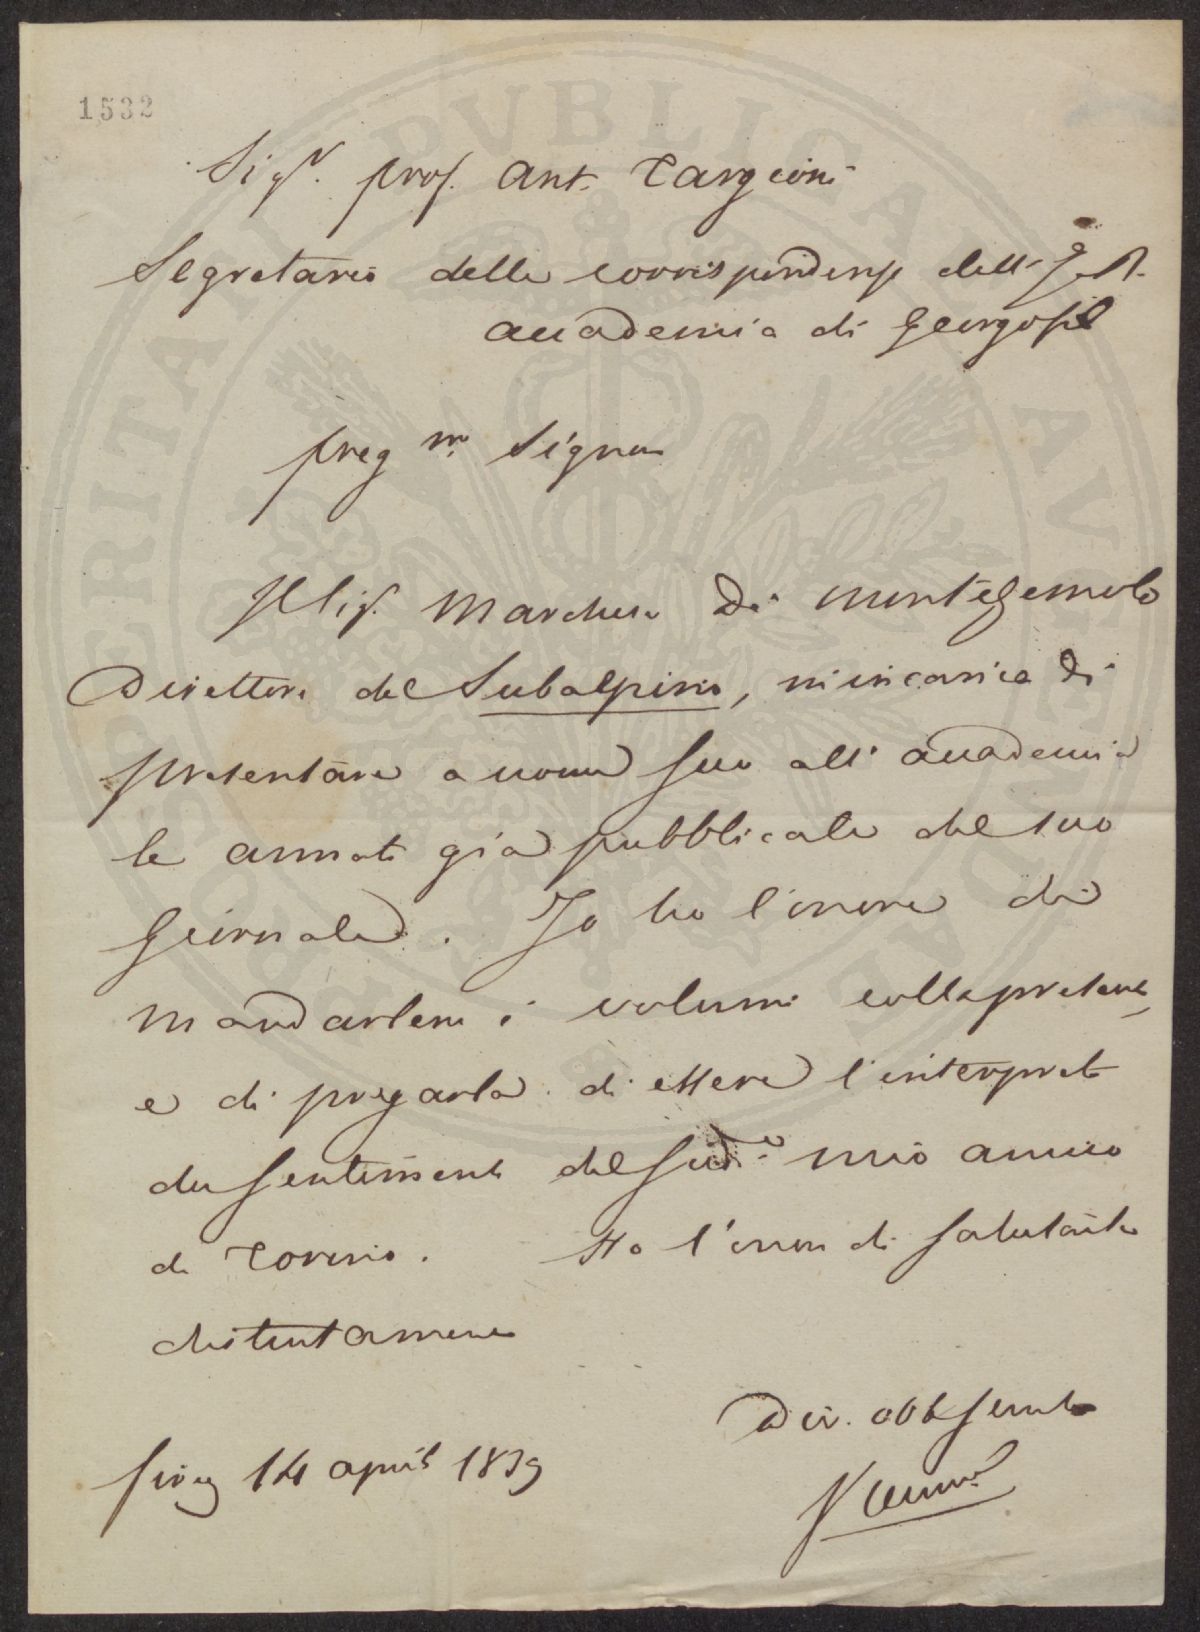 1532
Sigr. prof. Ant. Targioni
Segretario delle corrispondenze dell' I. e R.
Accademia di Georgofili
Preg.mo Signore
Il Sig. Marchese di Montezemolo
Direttore del Subalpino, m'incarica di
presentare a nome suo all'accademia
le annate già pubblicate del suo
Giornale. Io ho l'onore di
mandarlene i volumi colla presente,
e di pregarla di essere l'interprete
dei sentimenti del sudo. mio amico
di Torino. Ho l'onor di salutarla
distintamente
Dev. obb. Servitore
Firenze 14 aprile 1839
Vieusseux
PROSPERITATI PVBLICAE AVGENDAE